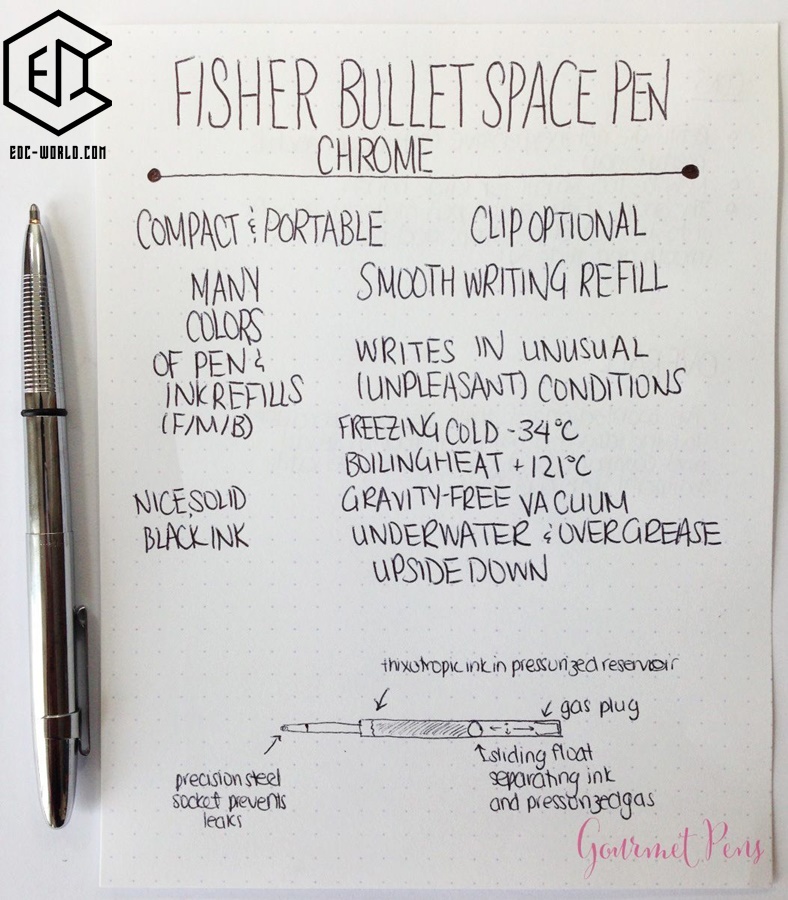 EDC
EDC-WORLD.COM
FISHER BULLET SPACE PEN
CHROME
COMPACT & PORTABLE
CLIP OPTIONAL
MANY
COLORS
OF PEN &
INK REFILLS
(F/M/B)
SMOOTH WRITING REFILL
WRITES IN UNUSUAL
(UNPLEASANT) CONDITIONS
FREEZING COLD -34°C
BOILING HEAT +121°C
GRAVITY-FREE VACUUM
UNDERWATER & OVER GREASE
UPSIDE DOWN
NICE, SOLID
BLACK INK
thixotropic ink in pressurized reservoir
gas plug
sliding float
separating ink
and pressurized gas
precision steel
socket prevents
leaks
Gourmet Pens